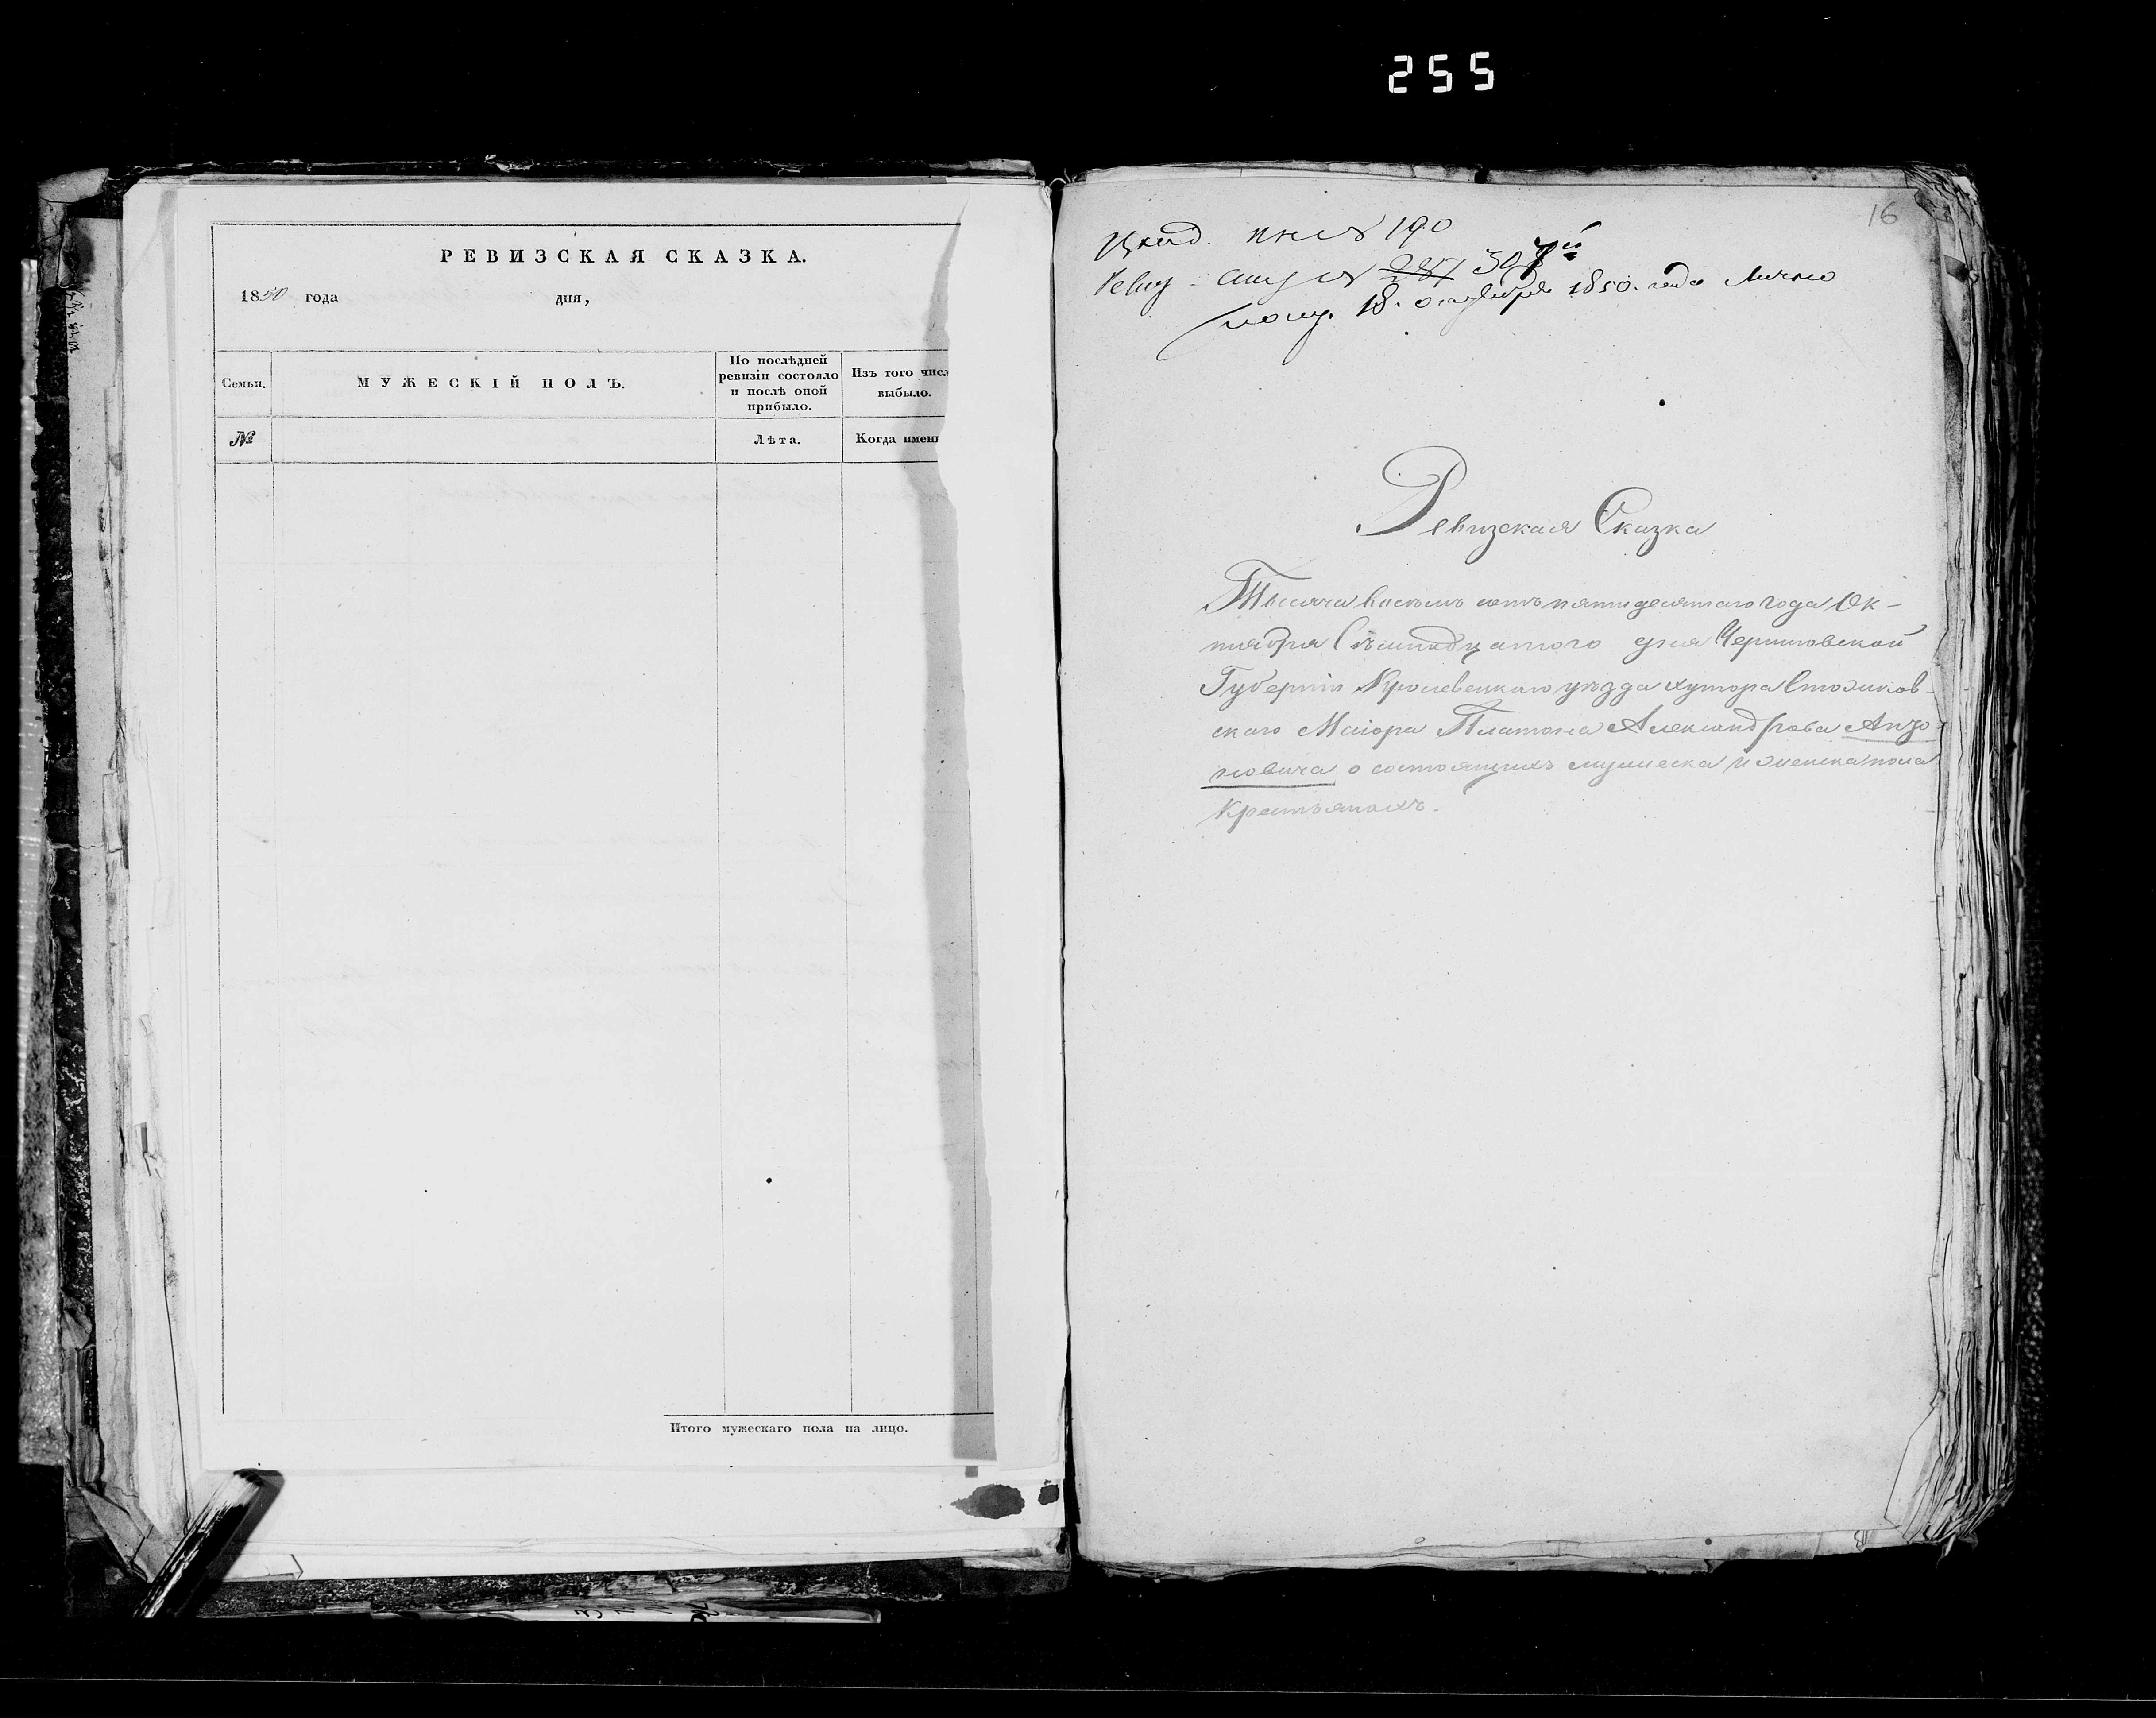 255
РЕВИЗСКАЯ СКАЗКА.
1850 года дня,
Семьи.
МУЖЕСКІЙ ПОЛЪ.
По послѣдней
ревизіи состояло
и послѣ оной
прибыло.
Изъ того числ
выбыло.
№
Лѣта.
Когда имен
Итого мужескаго пола на лицо.
16
190
287
18. октября 1850. года Лично
Ревизская Сказка
Тысяча восемь сотъ пятидесятаго года Ок-
тября дня Черниговской
Губерніи Кролевецкаго уѣзда хутора
скаго Маіора Платона Александрова
новича о состоящихъ мужеска и женска пола
Крестьянахъ.